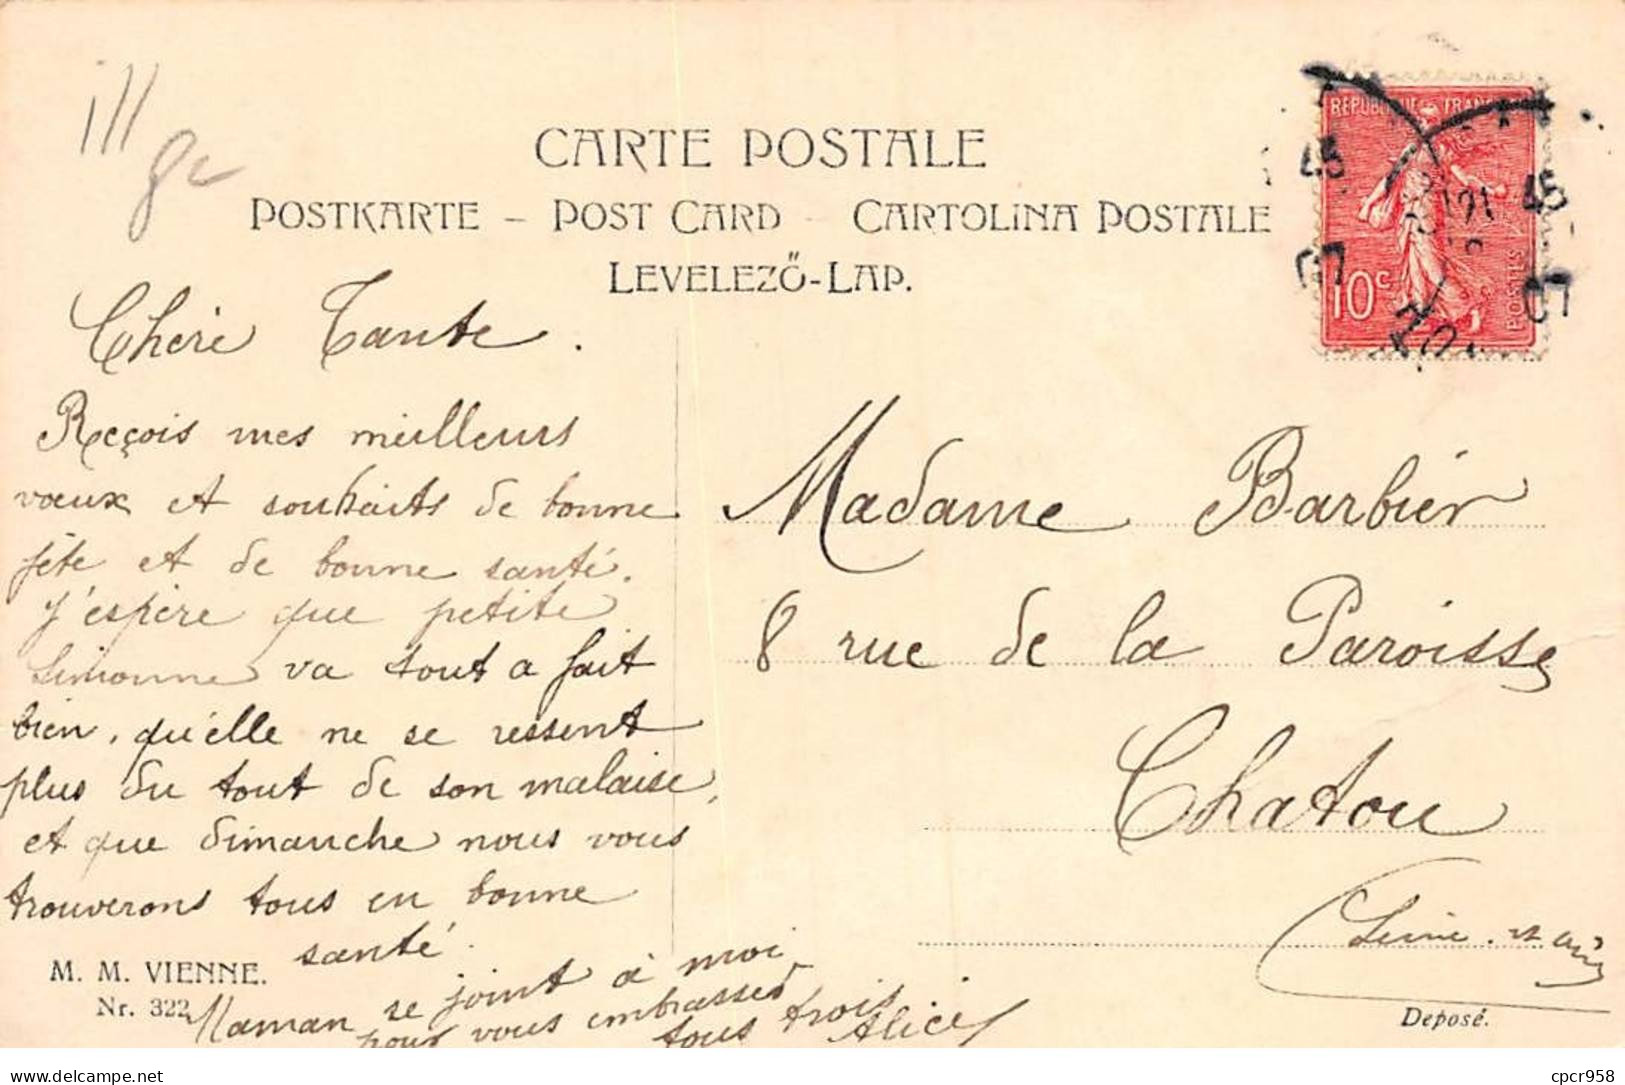 ill
CARTE POSTALE
POSTKARTE – POST CARD – CARTOLINA POSTALE
LEVELEZŐ-LAP.
RÉPUBLIQUE FRANÇAISE
10c
POSTES
45
45
07
07
Chère Tante.
Reçois mes meilleurs
vœux et souhaits de bonne
fête et de bonne santé.
J'espère que petite
Simonne va tout a fait
bien, qu'elle ne se ressent
plus du tout de son malaise,
et que dimanche nous vous
trouverons tous en bonne
santé.
Maman se joint à moi
pour vous embrasser
tous trois
Alice
Madame Barbier
8 rue de la Paroisse
Chatou
Seine-et-Oise
M. M. VIENNE.
Nr. 322
Deposé.
Delcampe.net
cpcr958